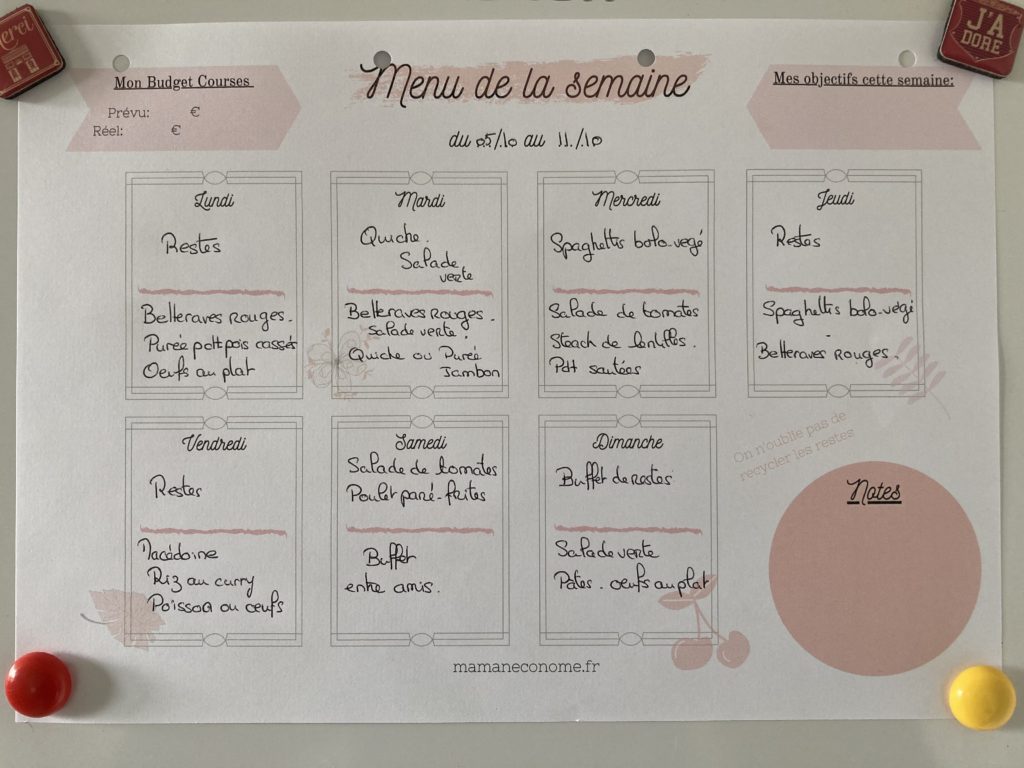 Merci
J'A
DORE
Mon Budget Courses
Prévu: €
Réel: €
Menu de la semaine
du 05/.10 au 11./.10
Mes objectifs cette semaine:
Lundi
Restes
Betteraves Rouges.
Purée pdt pois cassés
Oeufs au plat
Mardi
Quiche.
Salade
verte
Betteraves Rouges.
Salade verte.
Quiche ou Purée
Jambon
Mercredi
Spaghettis bolo-végé
Salade de tomates
Steack de lentilles.
Pdt sautées
Jeudi
Restes
Spaghettis bolo-végé
-
Betteraves Rouges.
Vendredi
Restes
Macédoine
Riz au curry
Poisson ou oeufs
Samedi
Salade de tomates
Poulet pané-frites
Buffet
entre amis.
Dimanche
Buffet de restes
Salade verte
Pates. oeufs au plat
On n'oublie pas de
recycler les restes
Notes
mamaneconome.fr